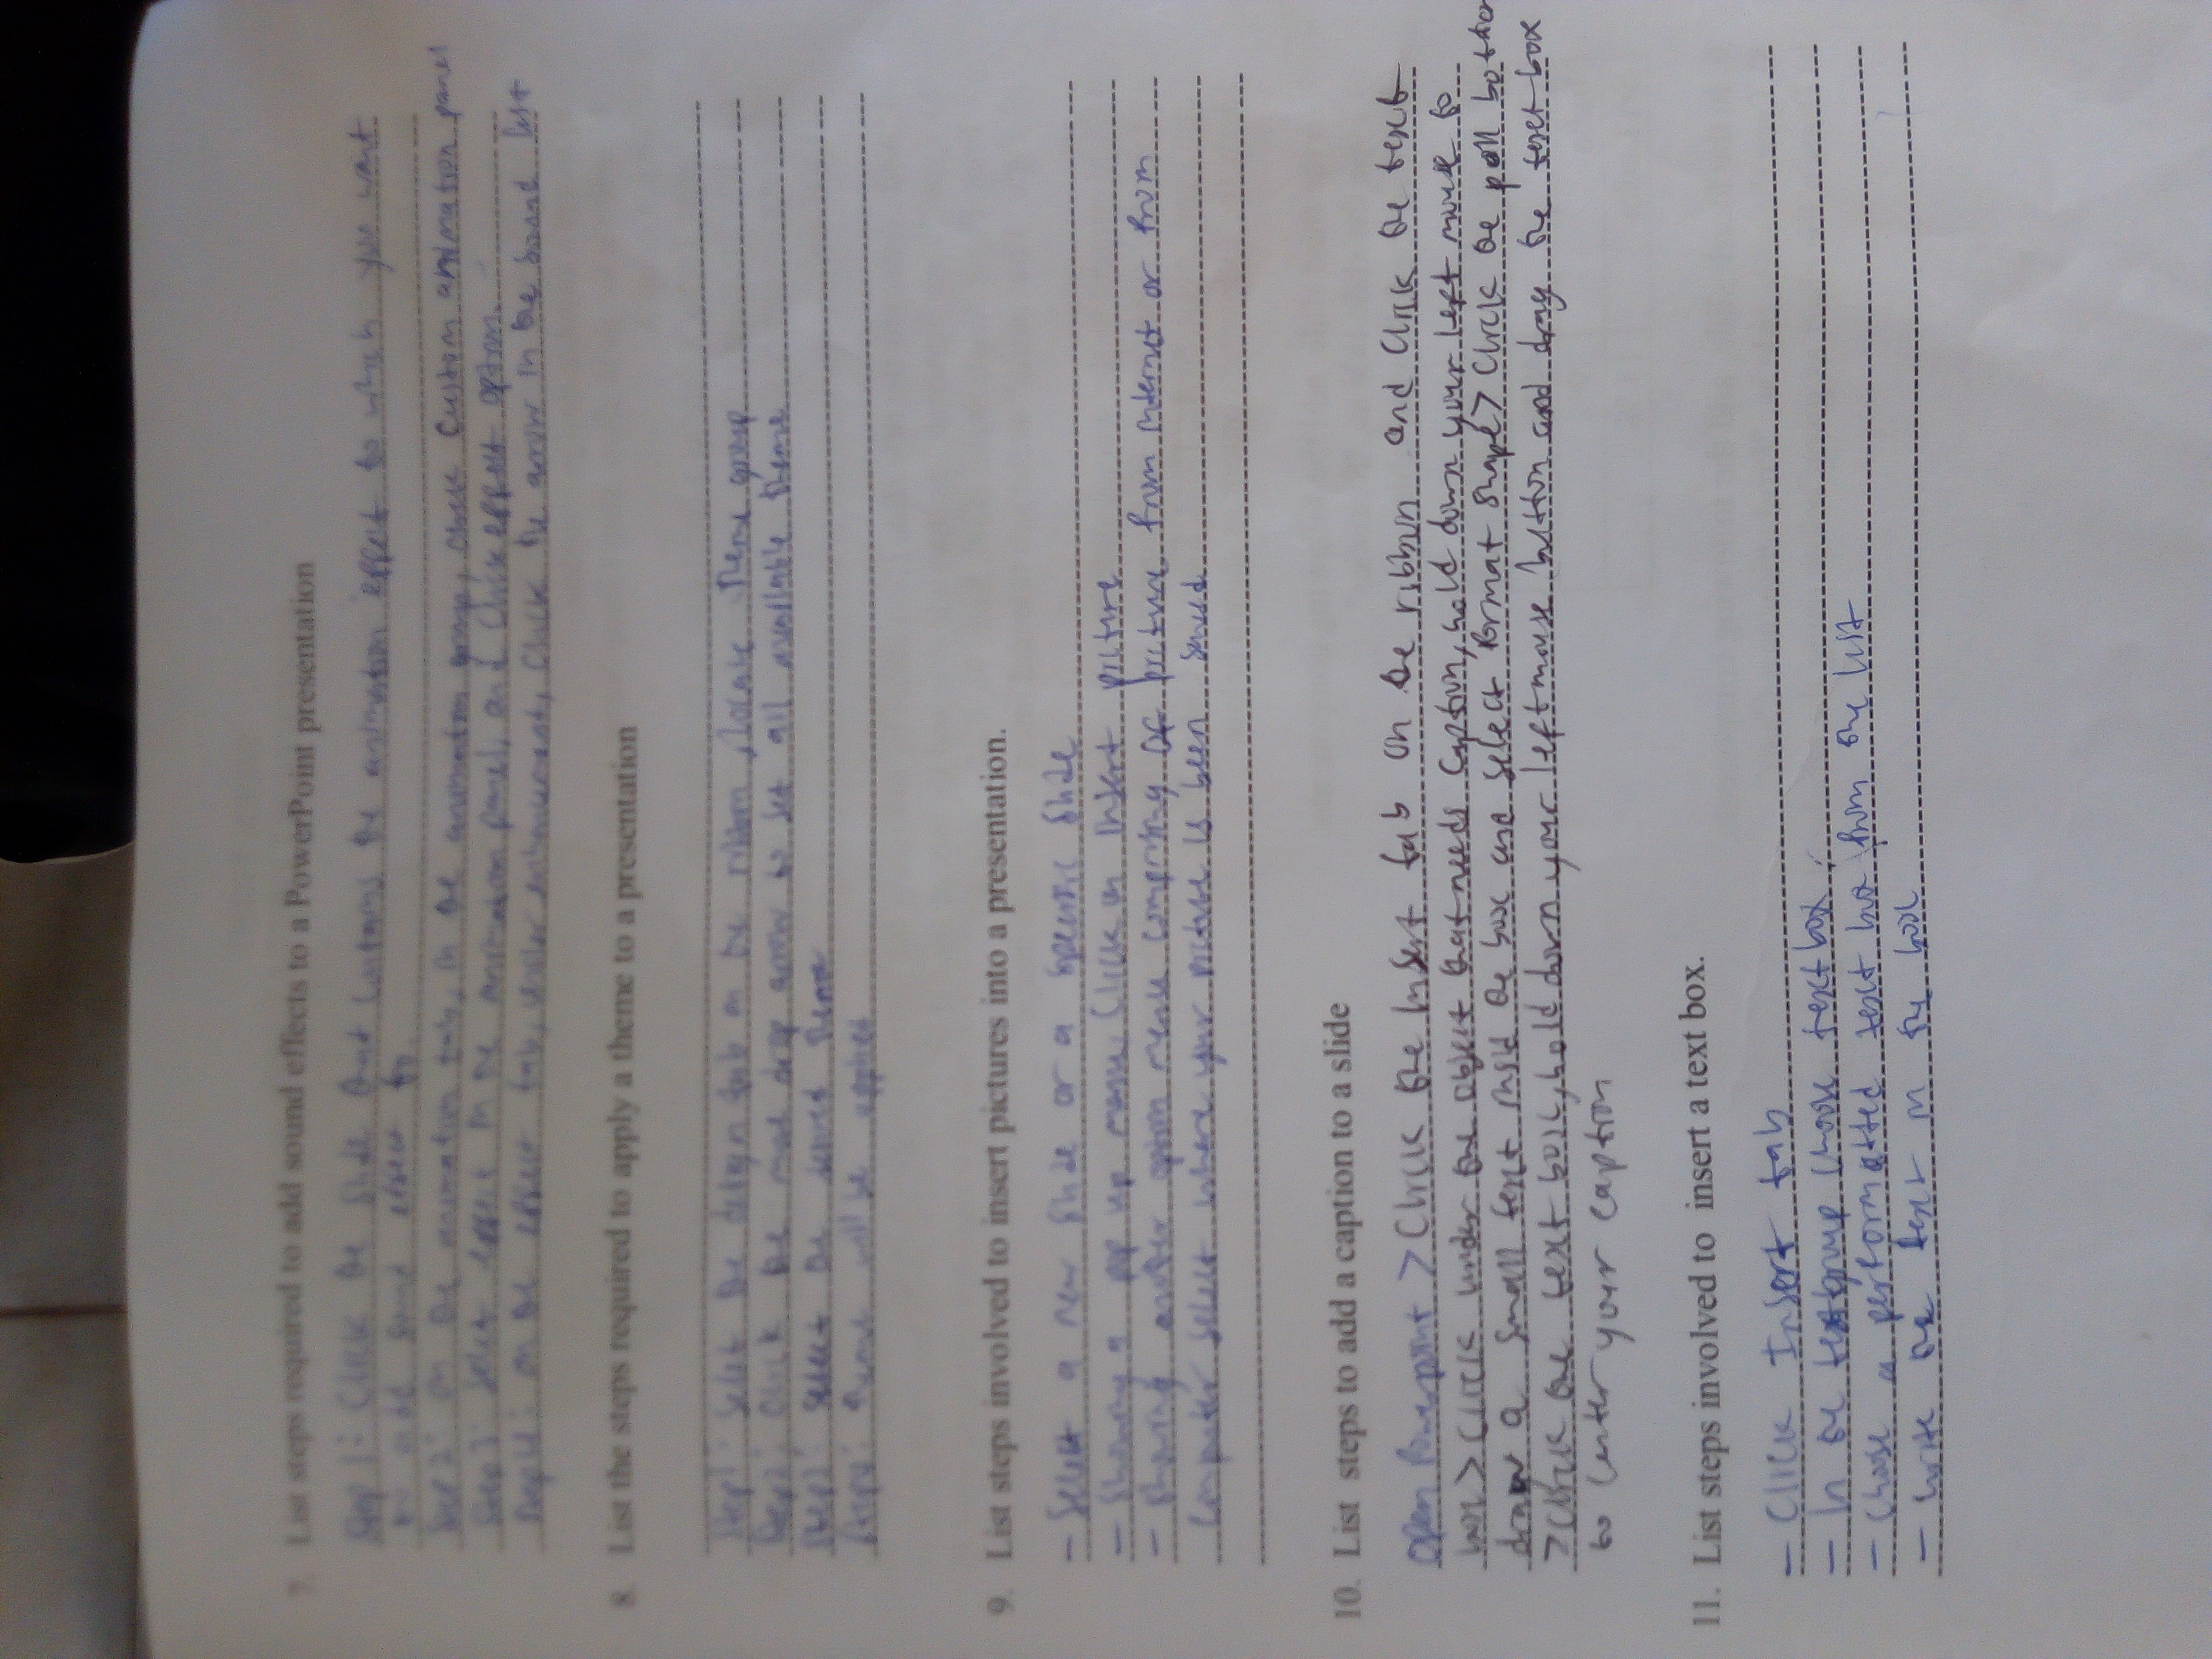 7. List steps required to add sound effects to a PowerPoint presentation
Step 1: Click the slide that contains the animation effect to which you want
to add sound effect to.
Step 2: on the animation tab, in the animation group, click Custom animation panel
Step 3: select effect in the animation panel, and Click effect option.
Step 4: on the effect tab, under enhancement, Click the arrow in the sound list
8. List the steps required to apply a theme to a presentation
Step 1: Select the design tab on the ribbon, locate theme group
Step 2: Click the drop arrow to see all available theme
Step 3: select the desired theme
theme will be applied
9. List steps involved to insert pictures into a presentation.
- Select a new slide or a specific slide
- Showing a pop up menu, Click on Insert picture
- Showing another option menu comprising of picture from internet or from
Computer select where your picture is been saved
10. List steps to add a caption to a slide
Open Powerpoint > Click the Insert tab on the ribbon and Click the text
box > Click under the object that needs Caption, hold down your left mouse to
draw a small text the box and select format shape > Click
> Click the text box, hold down your left mouse button and drag the text box
to Center your caption
11. List steps involved to insert a text box.
- Click Insert tab
- In the textgroup Choose text box,
- Choose a text box from the list
- write the text in the box